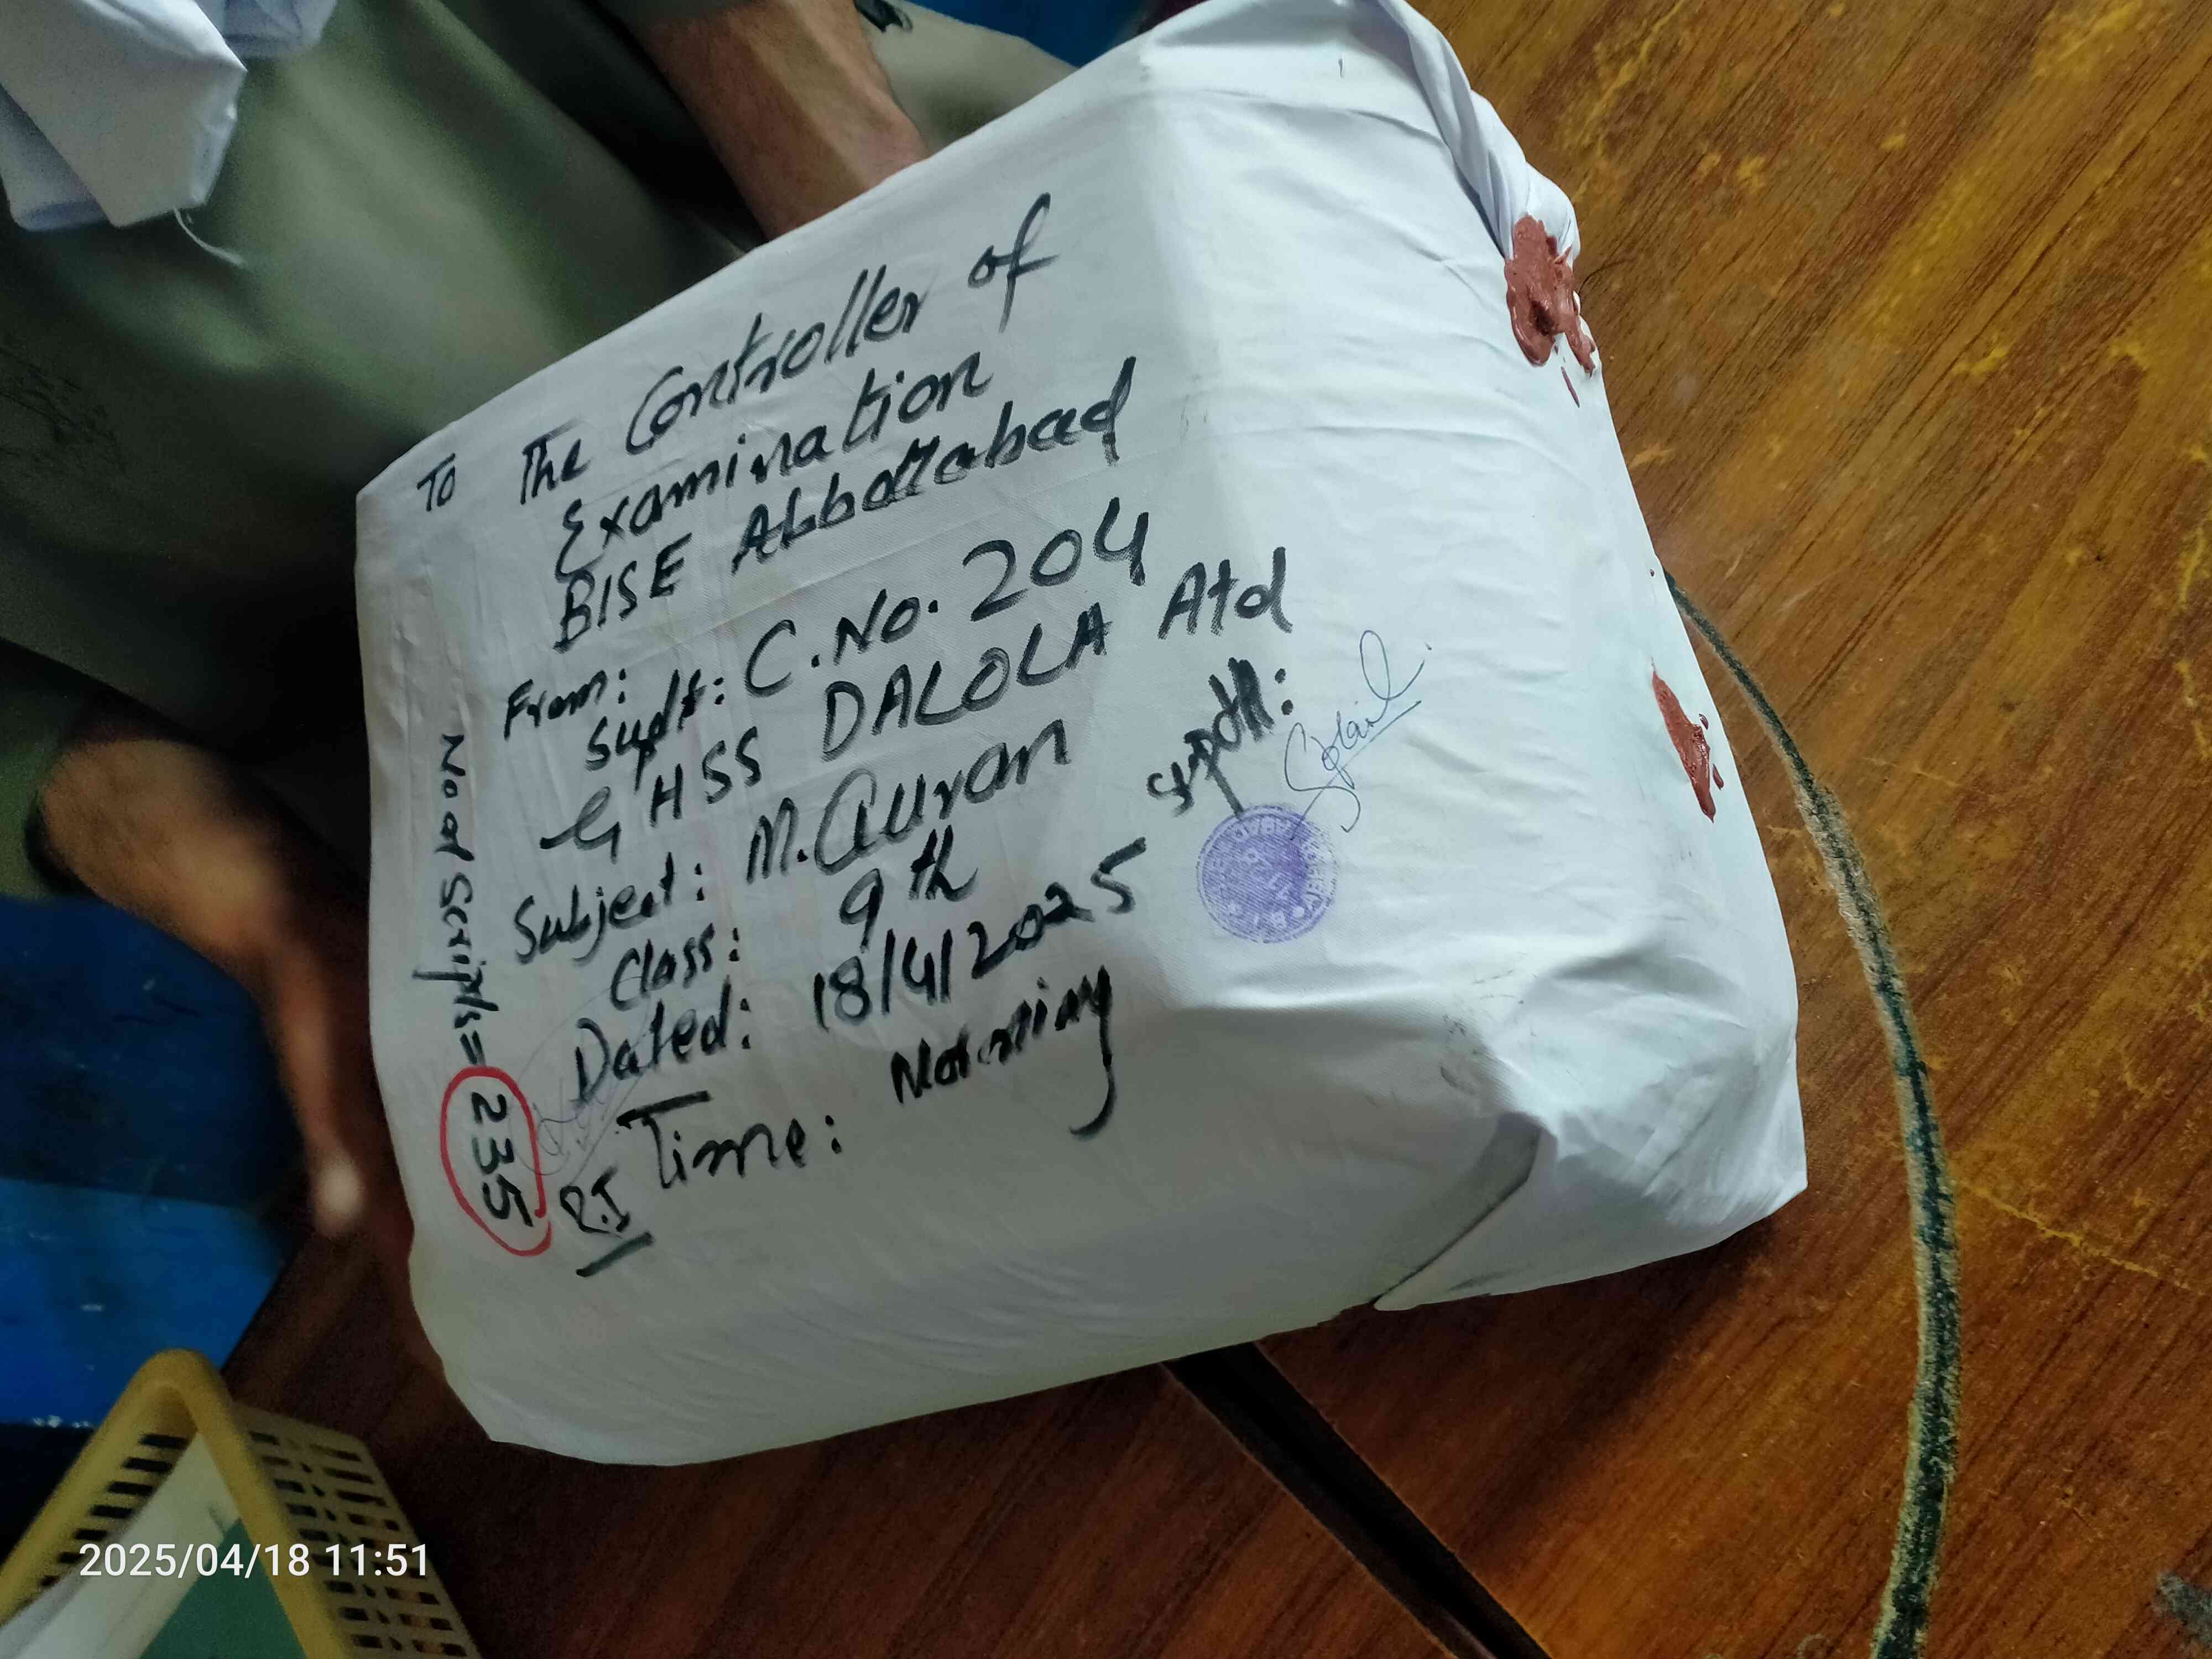 To The Controller of
Examination
BISE Abbottabad
From:
Supdt: C.No. 204
GHSS DALOLA Atd
Subject: M.Quran
Class: 9th
Dated: 18/4/2025
Time: Morning
Supdtt:
No of Scripts = 235
R.I
2025/04/18 11:51